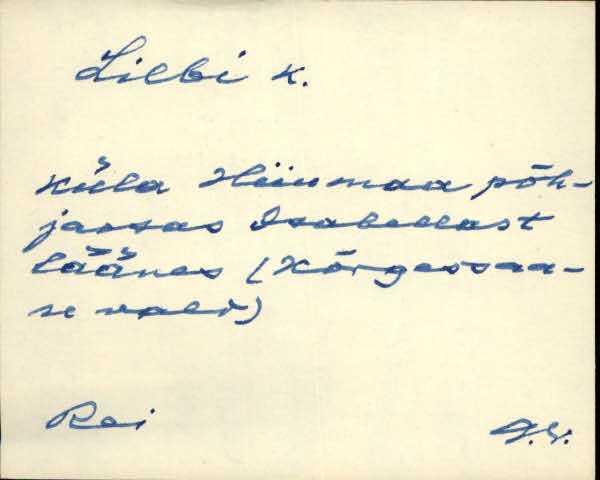 Lilbi k.
Küla Hiiumaa põh-
jaosas Isabellast
läänes (Kõrgessaa-
se vald)
Rei